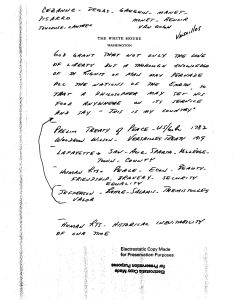 CEZANNE - DEGAS - GAUGUIN - MANET -
PISARRO MONET - RENOIR
TOULOUSE-LAUTREC VAN GOGH
Versailles
THE WHITE HOUSE
WASHINGTON
GOD GRANT THAT NOT ONLY THE LOVE
OF LIBERTY BUT A THOROUGH KNOWLEDGE
OF THE RIGHTS OF MAN MAY PERVADE
ALL THE NATIONS OF THE EARTH SO
THAT A PHILOSOPHER MAY SET HIS
FOOT ANYWHERE ON ITS SURFACE
AND SAY - THIS IS MY COUNTRY"
PRELIM TREATY OF PEACE - US/GB 1782
WOODROW WILSON - VERSAILLES TREATY 1919
LAFAYETTE
TOWN - COUNTY
HUMAN RTS - PEACE - ECON - BEAUTY -
FRIENDSHIP - BRAVERY - SECURITY
EQUALITY
JEFFERSON - SALAMIS - THEMISTOCLES
VALOR
- HUMAN RTS - HISTORICAL INEVITABILITY
OF OUR TIME
Electrostatic Copy Made
for Preservation Purposes
Electrostatic Copy Made
for Preservation Purposes